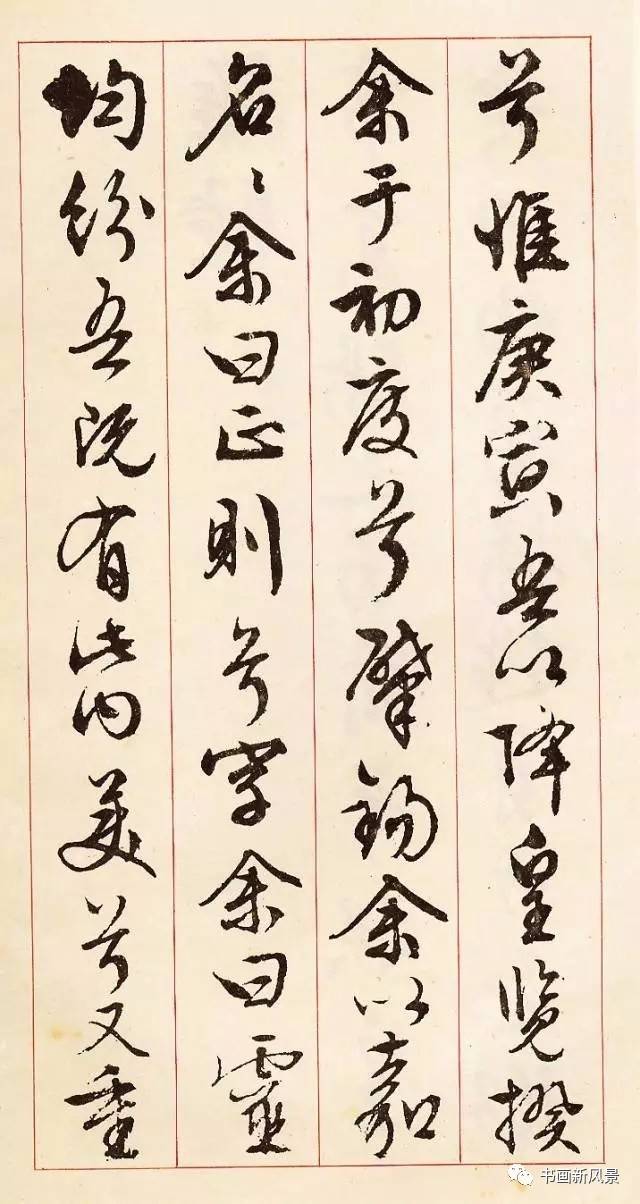 兮惟庚寅吾以降皇览揆
余于初度兮肇錫余以嘉
名〻余曰正則兮字余曰靈
均紛吾既有此内美兮又重
书画新风景